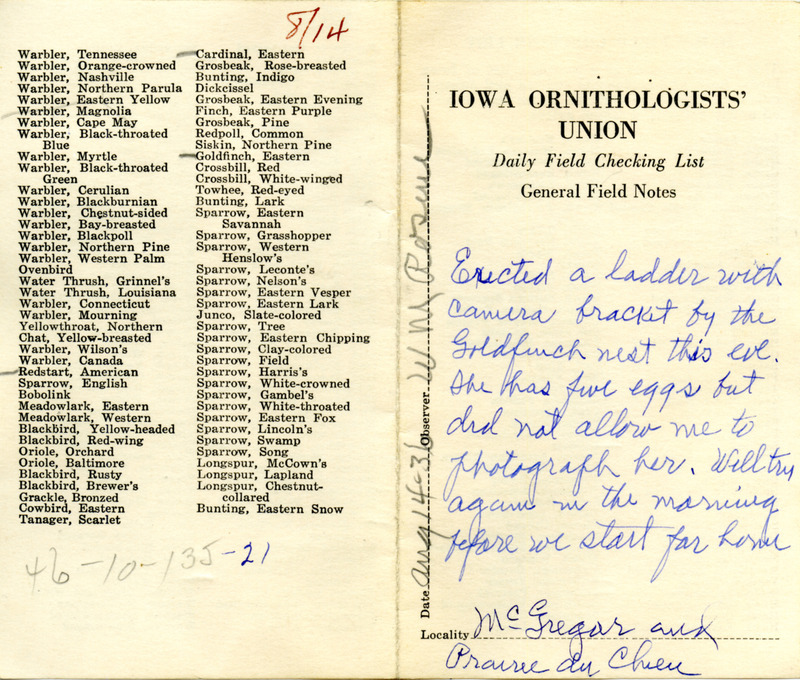 8/14
Warbler, Tennessee
Warbler, Orange-crowned
Warbler, Nashville
Warbler, Northern Parula
Warbler, Eastern Yellow
Warbler, Magnolia
Warbler, Cape May
Warbler, Black-throated
Blue
Warbler, Myrtle
Warbler, Black-throated
Green
Warbler, Cerulian
Warbler, Blackburnian
Warbler, Chestnut-sided
Warbler, Bay-breasted
Warbler, Blackpoll
Warbler, Northern Pine
Warbler, Western Palm
Ovenbird
Water Thrush, Grinnel's
Water Thrush, Louisiana
Warbler, Connecticut
Warbler, Mourning
Yellowthroat, Northern
Chat, Yellow-breasted
Warbler, Wilson's
Warbler, Canada
Redstart, American
Sparrow, English
Bobolink
Meadowlark, Eastern
Meadowlark, Western
Blackbird, Yellow-headed
Blackbird, Red-wing
Oriole, Orchard
Oriole, Baltimore
Blackbird, Rusty
Blackbird, Brewer's
Grackle, Bronzed
Cowbird, Eastern
Tanager, Scarlet
Cardinal, Eastern
Grosbeak, Rose-breasted
Bunting, Indigo
Dickcissel
Grosbeak, Eastern Evening
Finch, Eastern Purple
Grosbeak, Pine
Redpoll, Common
Siskin, Northern Pine
Goldfinch, Eastern
Crossbill, Red
Crossbill, White-winged
Towhee, Red-eyed
Bunting, Lark
Sparrow, Eastern
Savannah
Sparrow, Grasshopper
Sparrow, Western
Henslow's
Sparrow, Leconte's
Sparrow, Nelson's
Sparrow, Eastern Vesper
Sparrow, Eastern Lark
Junco, Slate-colored
Sparrow, Tree
Sparrow, Eastern Chipping
Sparrow, Clay-colored
Sparrow, Field
Sparrow, Harris's
Sparrow, White-crowned
Sparrow, Gambel's
Sparrow, White-throated
Sparrow, Eastern Fox
Sparrow, Lincoln's
Sparrow, Swamp
Sparrow, Song
Longspur, McCown's
Longspur, Lapland
Longspur, Chestnut-
collared
Bunting, Eastern Snow
46-10-135-21
Date Aug 14-36 Observer W M Rosene
IOWA ORNITHOLOGISTS'
UNION
Daily Field Checking List
General Field Notes
Erected a ladder with
camera bracket by the
Goldfinch nest this eve.
She has five eggs but
did not allow me to
photograph her. Will try
again in the morning
before we start for home
Locality McGregor and
Prairie du Chien